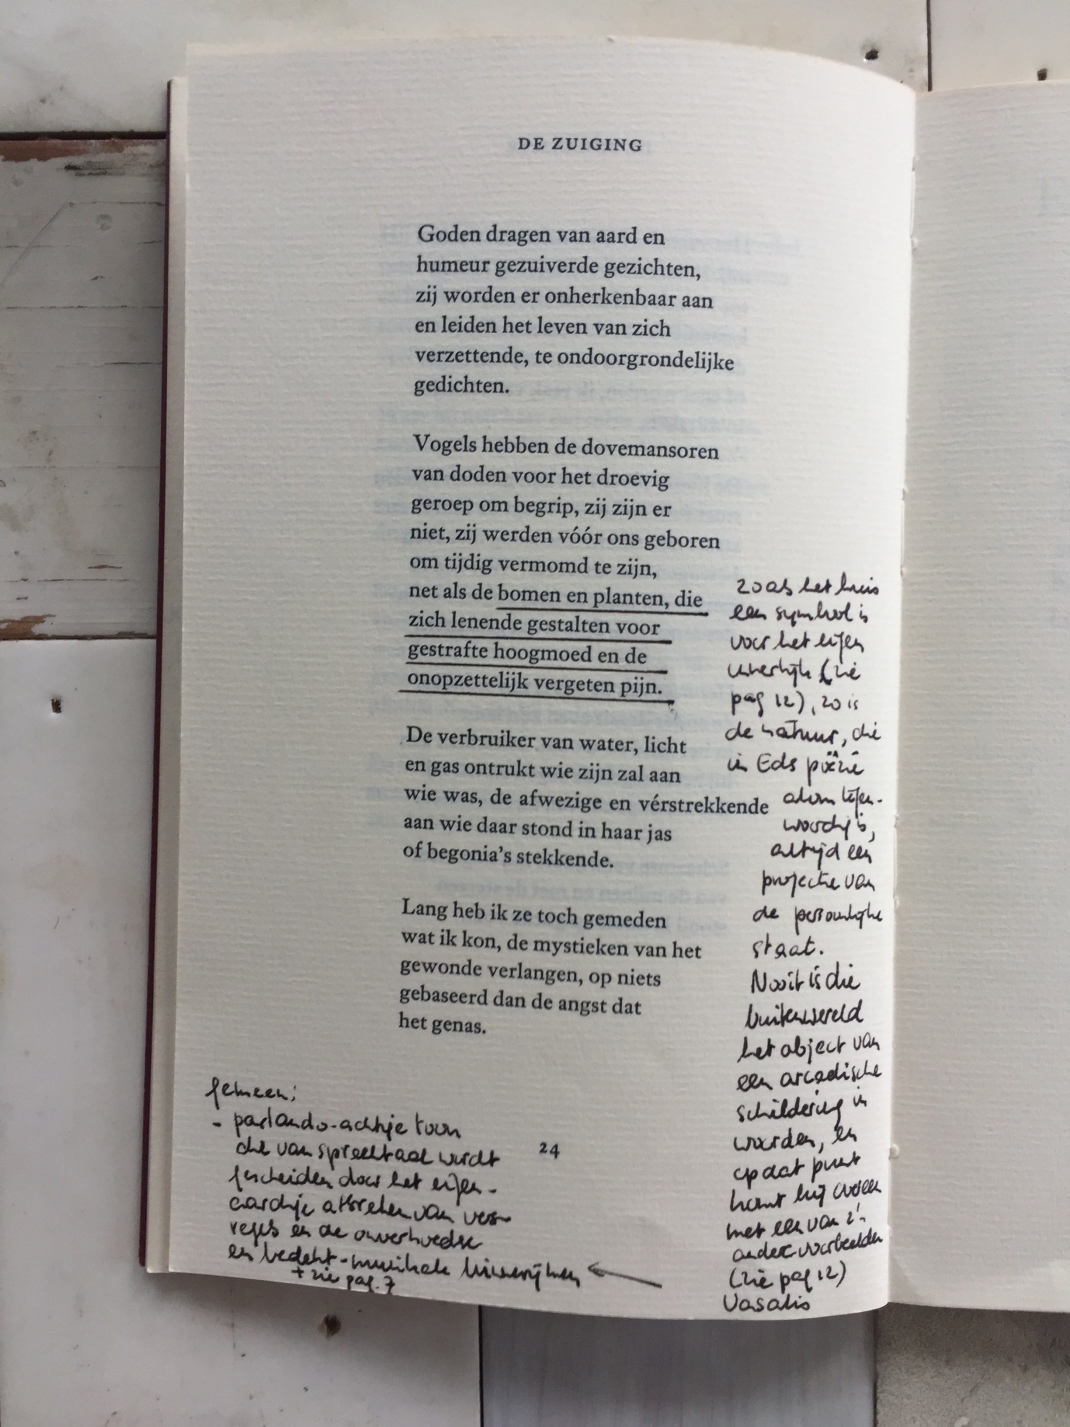 DE ZUIGING
Goden dragen van aard en
humeur gezuiverde gezichten,
zij worden er onherkenbaar aan
en leiden het leven van zich
verzettende, te ondoorgrondelijke
gedichten.
Vogels hebben de dovemansoren
van doden voor het droevig
geroep om begrip, zij zijn er
niet, zij werden vóór ons geboren
om tijdig vermomd te zijn,
net als de bomen en planten, die
zich lenende gestalten voor
gestrafte hoogmoed en de
onopzettelijk vergeten pijn.
De verbruiker van water, licht
en gas ontrukt wie zijn zal aan
wie was, de afwezige en vérstrekkende
aan wie daar stond in haar jas
of begonia's stekkende.
Lang heb ik ze toch gemeden
wat ik kon, de mystieken van het
gewonde verlangen, op niets
gebaseerd dan de angst dat
het genas.
zoals het huis
een symbool is
voor het eigen
innerlijk (zie
pag 12), zo is
de natuur, die
in Eds poëzie
alom tegen-
woordig is,
altijd een
projectie van
de persoonlijke
staat.
Nooit is die
buitenwereld
het object van
een arcadische
schildering in
woorden, en
op dat punt
komt hij overeen
met een van z'n
andere voorbeelden
(zie pag 12)
Vasalis
gemeen:
- parlando-achtige toon
die van spreektaal wordt
gescheiden door het eigen-
aardige afbreken van vers-
regels en de onverhoedse
en bedekt-muzikale binnenrijmen
+ zie pag. 7
24